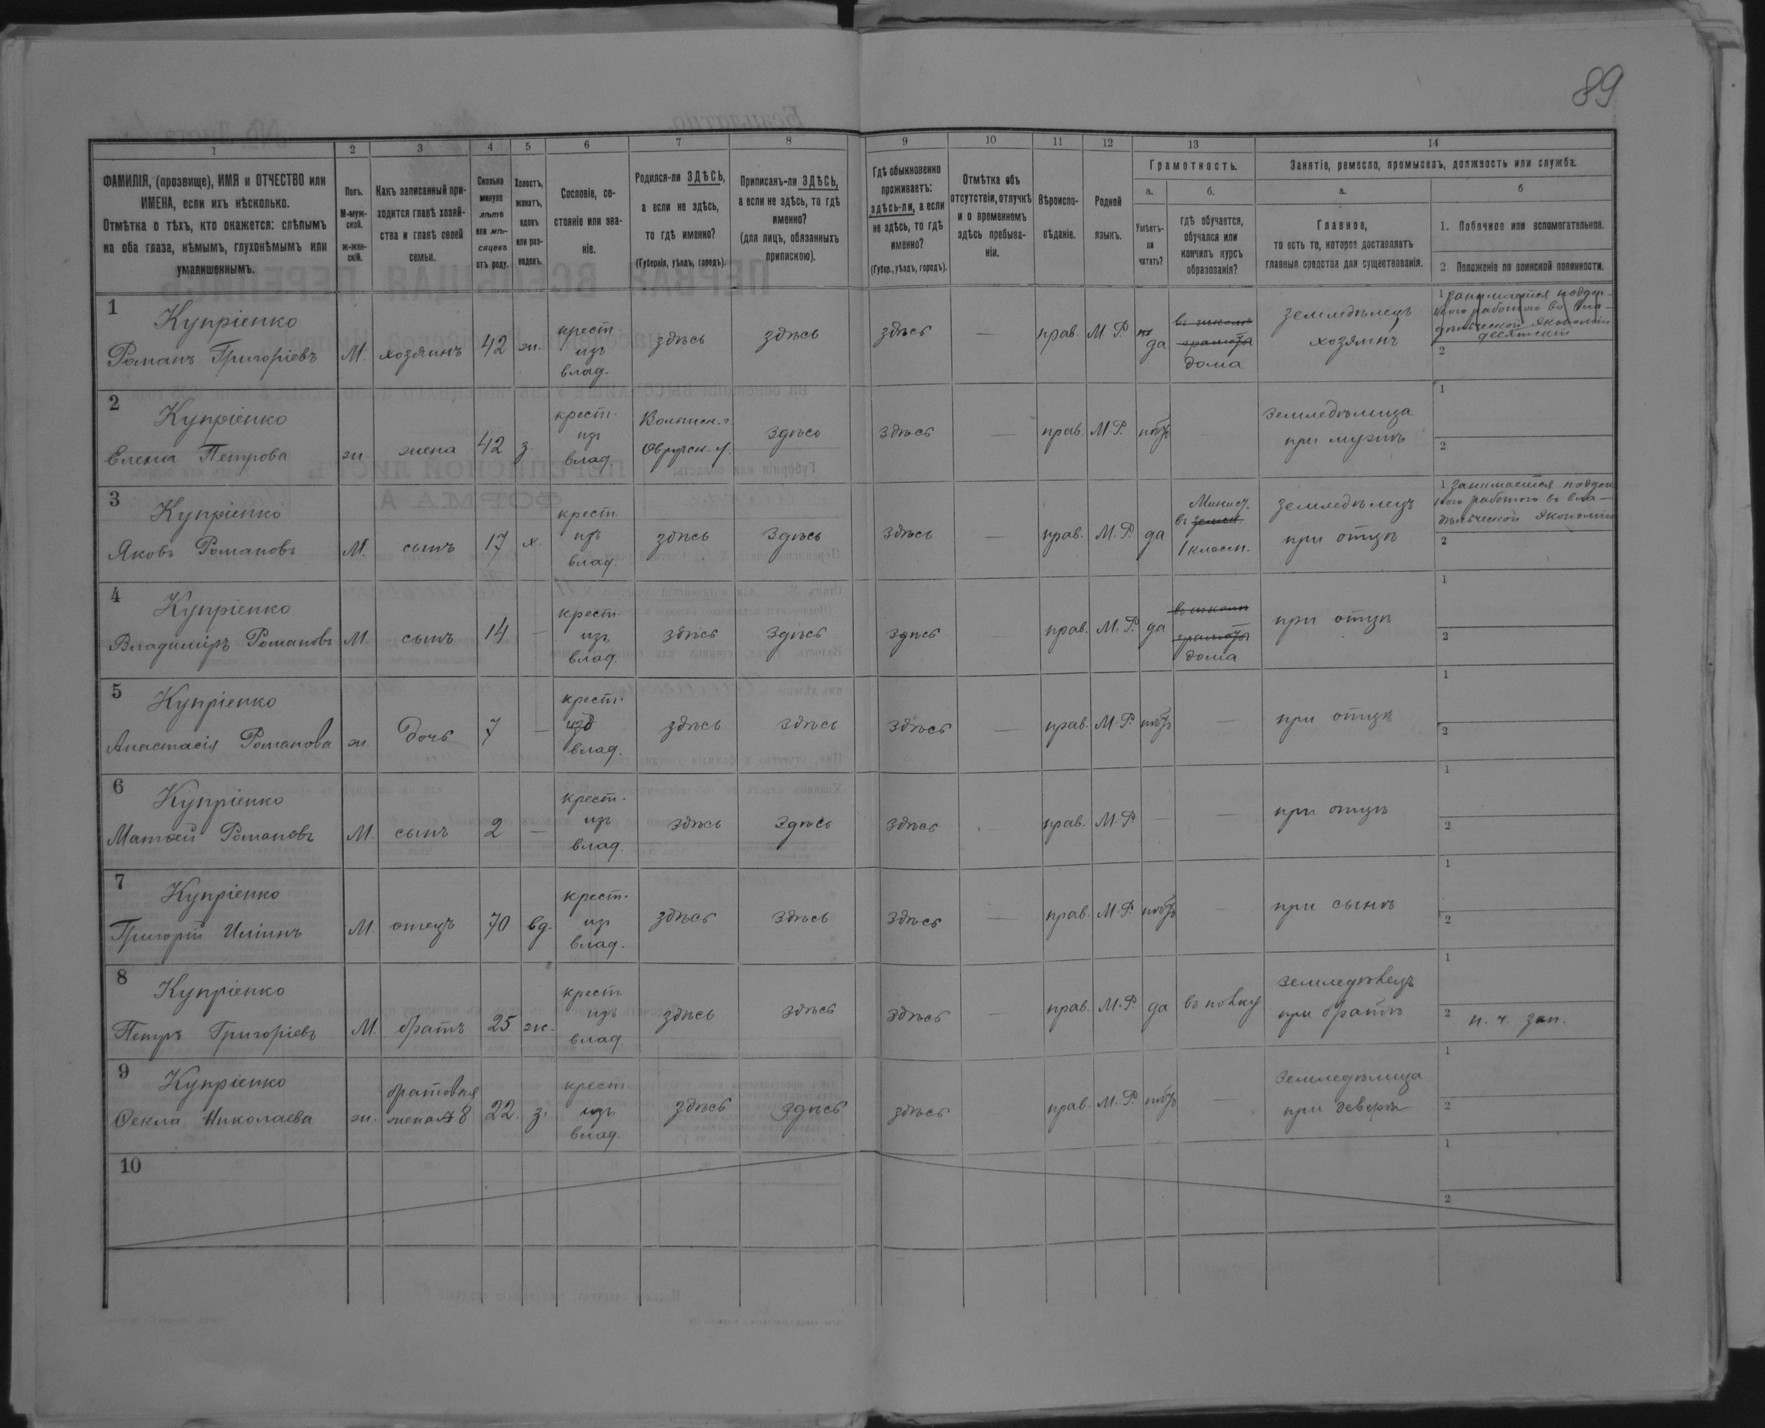 89
1 2 3 4 5 6 7 8 9 10 11 12 13 14
ФАМИЛІЯ, (прозвище), ИМЯ и ОТЧЕСТВО или
ИМЕНА, если ихъ нѣсколько.
Отмѣтка о тѣхъ, кто окажется: слѣпымъ
на оба глаза, нѣмымъ, глухонѣмымъ или
умалишеннымъ.
Полъ.
М-муж-
ской.
ж-жен-
скій.
Какъ записанный при-
ходится главѣ хозяй-
ства и главѣ своей
семьи.
Сколько
минуло
лѣтъ
или мѣ-
сяцевъ
отъ роду.
Холостъ,
женатъ,
вдовъ
или раз-
веденъ.
Сословіе, со-
стояніе или зва-
ніе.
Родился-ли ЗДѢСЬ,
а если не здѣсь,
то гдѣ именно?
(Губернія, уѣздъ, городъ).
Приписанъ-ли ЗДѢСЬ,
а если не здѣсь, то гдѣ
именно?
(для лицъ, обязанныхъ
припискою).
Гдѣ обыкновенно
проживаетъ:
здѣсь-ли, а если
не здѣсь, то гдѣ
именно?
(Губер., уѣздъ, городъ).
Отмѣтка объ
отсутствіи, отлучкѣ
и о временномъ
здѣсь пребыва-
ніи.
Вѣроиспо-
вѣданіе.
Родной
языкъ.
Грамотность.
а.
Умѣетъ-
ли
читать?
б.
гдѣ обучается,
обучался или
кончилъ курсъ
образованія?
Занятіе, ремесло, промыселъ, должность или служба.
а.
Главное,
то есть то, которое доставляетъ
главныя средства для существованія.
б
1. Побочное или вспомогательное.
2 Положеніе по воинской повинности.
1
Купріенко
Романъ Григоріевъ
М.
хозяинъ
42
ж.
крест
изъ
влад.
здѣсь
здѣсь
здѣсь
—
прав.
М.Р.
да
въ школѣ
грамоты
дома
земледѣлецъ
хозяинъ
1 занимается
2
2
Купріенко
Елена Петрова
ж.
жена
42
з.
крест.
изъ
влад
Волынск. г.
Овручск. у.
здѣсь
здѣсь
—
прав.
М.Р.
нѣтъ
земледѣлица
при мужѣ
1
2
3
Купріенко
Яковъ Романовъ
М.
сынъ
17
х.
крест
изъ
влад.
здѣсь
здѣсь
здѣсь
—
прав.
М.Р.
да
Минист.
въ
1 класн.
земледѣлецъ
при отцѣ
1 Занимается поден-
ною работою въ вла-
дѣльческой экономіи
2
4
Купріенко
Владиміръ Романовъ
М.
сынъ
14
—
крест.
изъ
влад.
здѣсь
здѣсь
здѣсь
—
прав.
М.Р.
да
въ школѣ
грамоты
дома
при отцѣ
1
2
5
Купріенко
Анастасія Романова
ж
дочь
7
—
крест.
изъ
влад.
здѣсь
здѣсь
здѣсь
—
прав.
М.Р.
нѣтъ
—
при отцѣ
1
2
6
Купріенко
Матѳей Романовъ
М.
сынъ
2
—
крест.
изъ
влад.
здѣсь
здѣсь
здѣсь
—
прав.
М.Р
—
—
при отцѣ
1
2
7
Купріенко
Григорій Ильинъ
М.
отецъ
70
вд.
крест.
изъ
влад.
здѣсь
здѣсь
здѣсь
—
прав.
М.Р.
нѣтъ
—
при сынѣ
1
2
8
Купріенко
Петръ Григоріевъ
М.
братъ
25
ж.
крест.
изъ
влад
здѣсь
здѣсь
здѣсь
—
прав.
М.Р.
да
въ полку
земледѣлецъ
при братѣ
1
2 н. ч. зап.
9
Купріенко
Ѳекла Николаева
ж.
братовая
жена 8
22.
з.
крест
изъ
влад.
здѣсь
здѣсь
здѣсь
прав.
М.Р.
нѣтъ
—
земледѣлица
при деверѣ
1
2
10
1
2